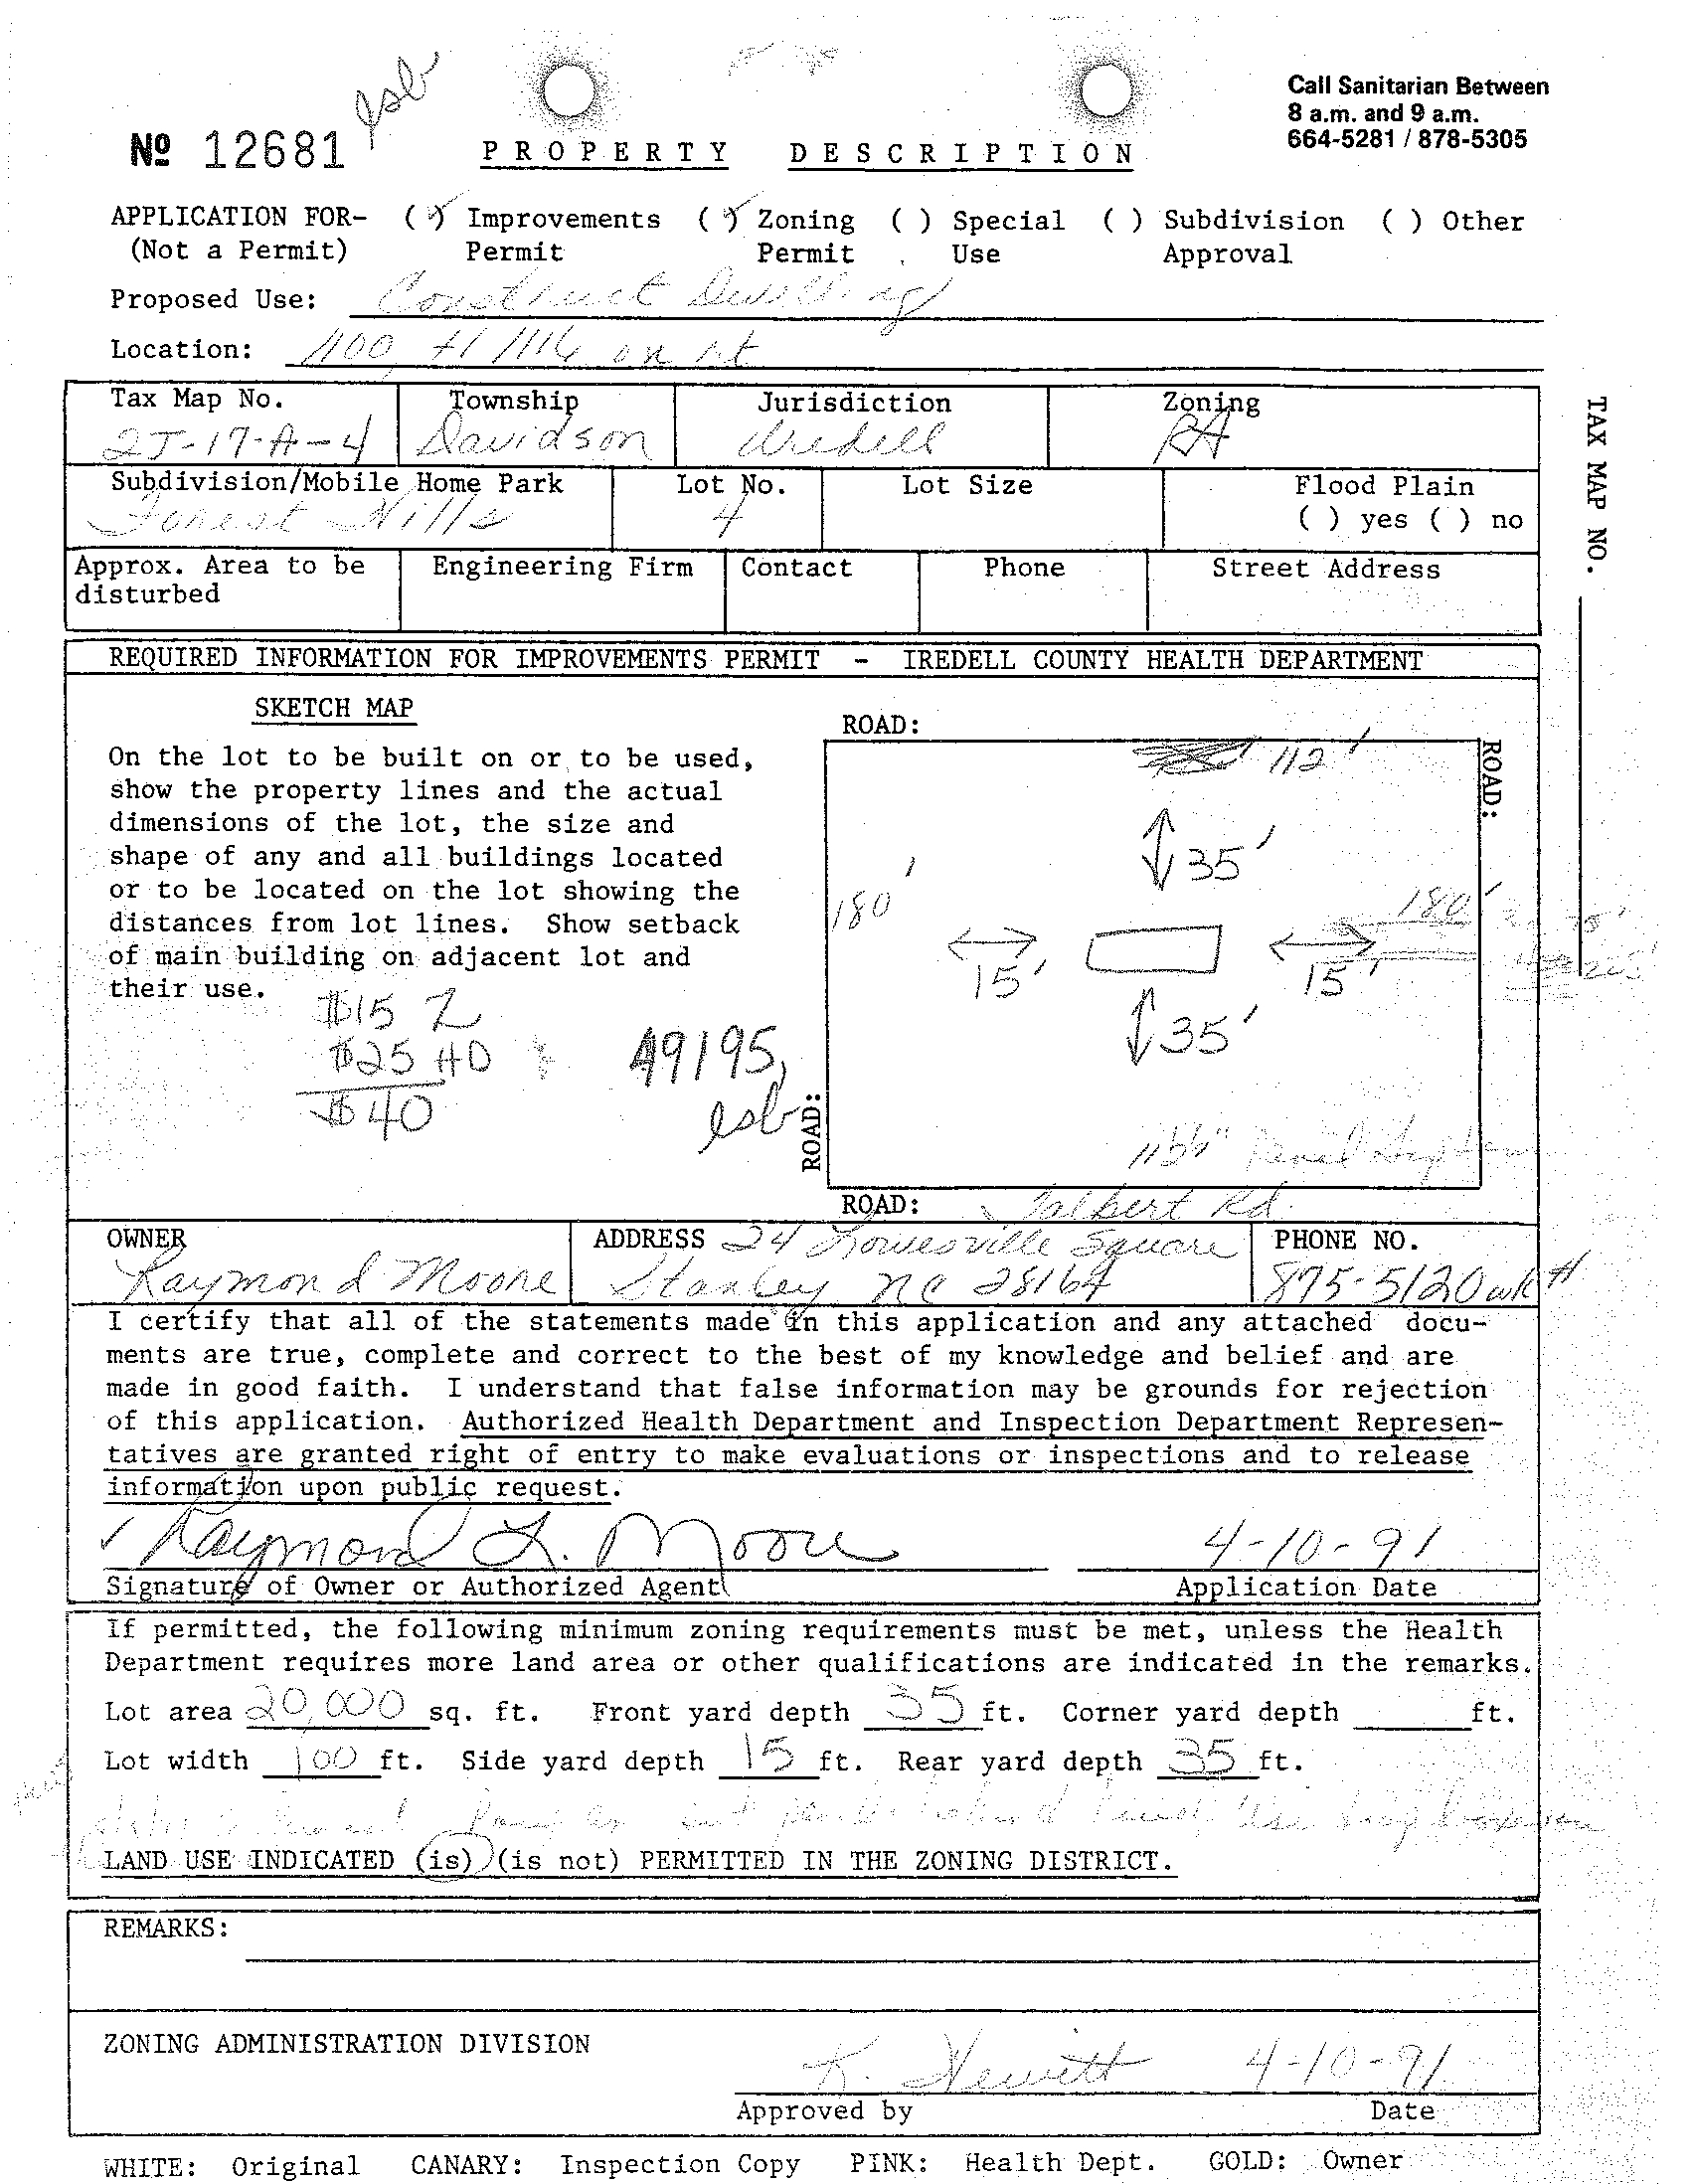 Call Sanitarian Between
8 a.m. and 9 a.m.
664-5281 / 878-5305
esb
Nº 12681
PROPERTY DESCRIPTION
APPLICATION FOR- (✓) Improvements (✓) Zoning ( ) Special ( ) Subdivision ( ) Other
(Not a Permit) Permit Permit Use Approval
Proposed Use: Construct Dwelling
Location: 1100 1116 on rt
Tax Map No. Township Jurisdiction Zoning
2J-17-A-4 Davidson Iredell RA
Subdivision/Mobile Home Park Lot No. Lot Size Flood Plain
Forest Hills 4 ( ) yes ( ) no
Approx. Area to be Engineering Firm Contact Phone Street Address
disturbed
TAX MAP NO.
REQUIRED INFORMATION FOR IMPROVEMENTS PERMIT - IREDELL COUNTY HEALTH DEPARTMENT
SKETCH MAP
On the lot to be built on or to be used,
show the property lines and the actual
dimensions of the lot, the size and
shape of any and all buildings located
or to be located on the lot showing the
distances from lot lines. Show setback
of main building on adjacent lot and
their use.
$15 Z
$25 HD
$40
49195
esb
ROAD:
112'
ROAD:
35'
180'
180'
15'
15'
35'
ROAD:
ROAD: Talbert Rd.
OWNER ADDRESS 24 Lowesville Square PHONE NO.
Raymond Moore Stanley NC 28164 875-5120 wk #
I certify that all of the statements made in this application and any attached docu-
ments are true, complete and correct to the best of my knowledge and belief and are
made in good faith. I understand that false information may be grounds for rejection
of this application. Authorized Health Department and Inspection Department Represen-
tatives are granted right of entry to make evaluations or inspections and to release
information upon public request.
✓ Raymond L. Moore 4-10-91
Signature of Owner or Authorized Agent Application Date
If permitted, the following minimum zoning requirements must be met, unless the Health
Department requires more land area or other qualifications are indicated in the remarks.
Lot area 20,000 sq. ft. Front yard depth 35 ft. Corner yard depth ft.
Lot width 100 ft. Side yard depth 15 ft. Rear yard depth 35 ft.
LAND USE INDICATED (is) (is not) PERMITTED IN THE ZONING DISTRICT.
REMARKS:
ZONING ADMINISTRATION DIVISION
K. Hewitt 4-10-91
Approved by Date
WHITE: Original CANARY: Inspection Copy PINK: Health Dept. GOLD: Owner